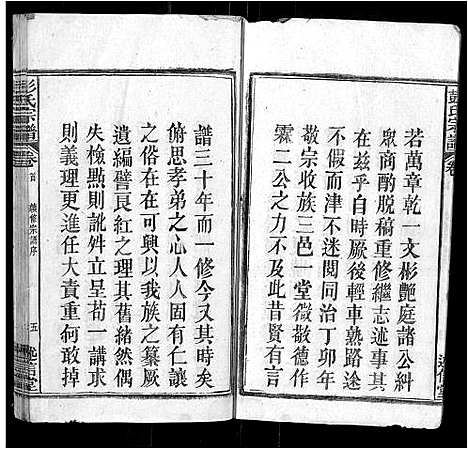 彭氏宗譜
若萬章乾一文彬艷庭諸公糾
眾商酌脱稿重修繼志述事其
在茲乎自時厥後輕車熟路途
不假而津不迷閱同治丁卯年
敬宗收族三邑一堂微敬德作
霖二公之力不及此昔賢有言
譜三十年而一修今又其時矣
俯思孝弟之心人人固有仁讓
之俗在在可興以我族之纂厥
遺編譬艮紅之理其舊緒然偶
失檢點則訛舛立呈苟一講求
則義理更進任大責重何敢掉
彭氏宗譜
卷首
續修宗譜序
五
述信堂